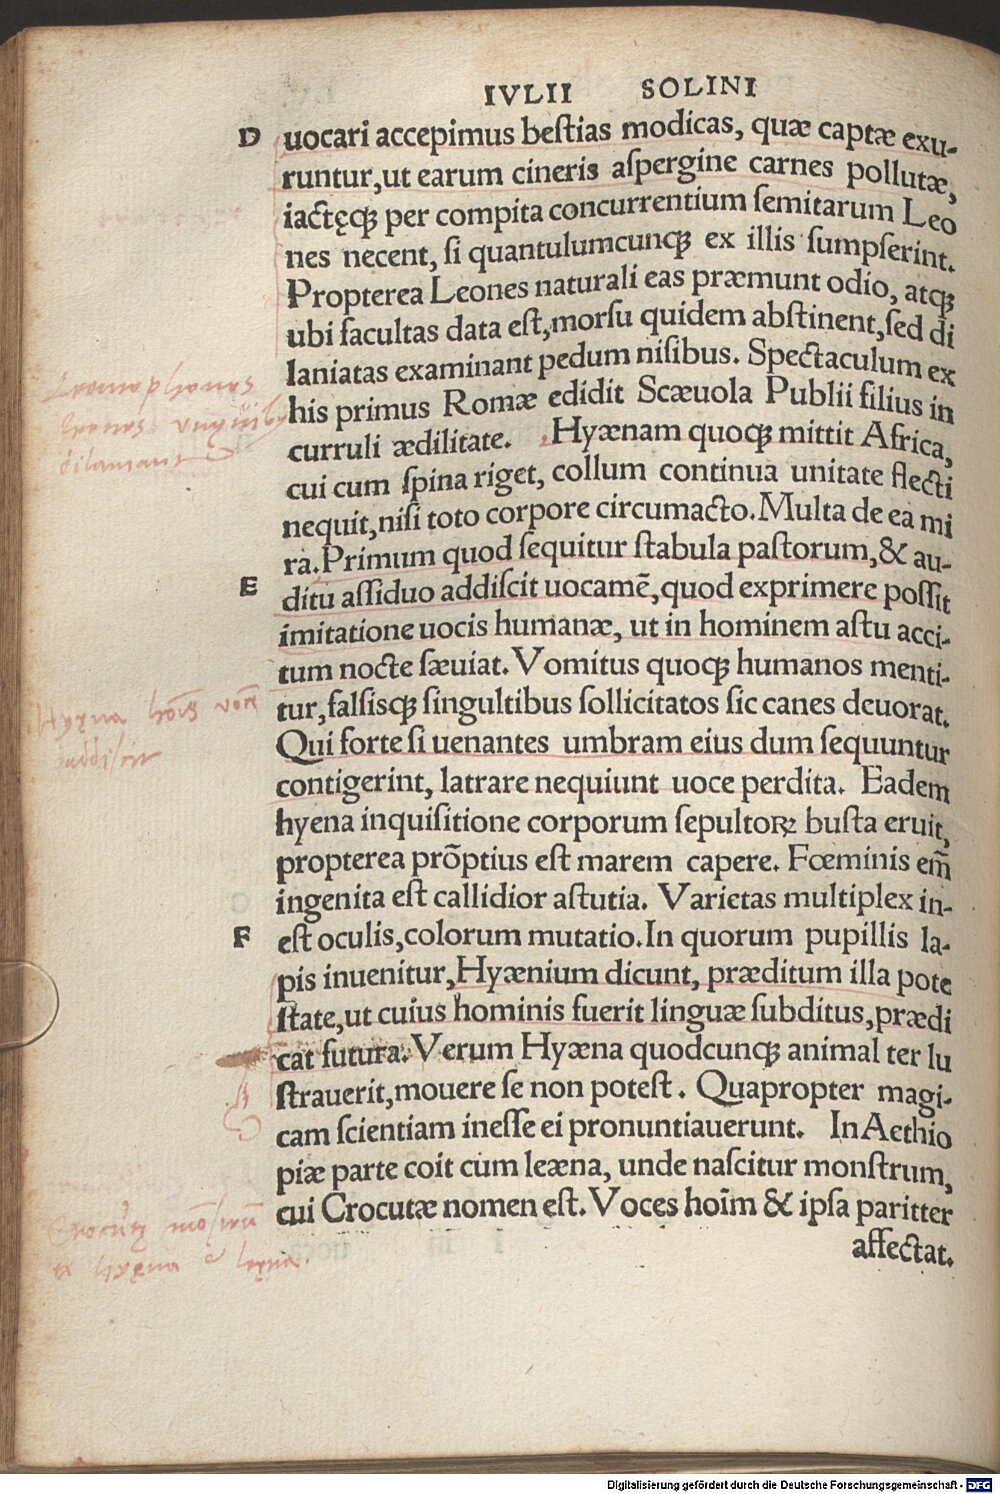 IVLII SOLINI
D uocari accepimus bestias modicas, quæ captæ exu-
runtur, ut earum cineris aspergine carnes pollutæ,
iactęqꝫ per compita concurrentium semitarum Leo
nes necent, si quantulumcunqꝫ ex illis sumpserint.
Propterea Leones naturali eas præmunt odio, atqꝫ
ubi facultas data est, morsu quidem abstinent, sed di
laniatas examinant pedum nisibus. Spectaculum ex
his primus Romæ edidit Scæuola Publii filius in
curruli ædilitate. Hyænam quoqꝫ mittit Africa,
cui cum spina riget, collum continua unitate flecti
nequit, nisi toto corpore circumacto. Multa de ea mi
ra. Primum quod sequitur stabula pastorum, & au-
E ditu assiduo addiscit uocamē, quod exprimere possit
imitatione uocis humanæ, ut in hominem astu acci-
tum nocte sæuiat. Vomitus quoqꝫ humanos menti-
tur, falsisqꝫ singultibus sollicitatos sic canes deuorat.
Qui forte si uenantes umbram eius dum sequuntur
contigerint, latrare nequiunt uoce perdita. Eadem
hyena inquisitione corporum sepultoꝝ busta eruit,
propterea prōptius est marem capere. Fœminis em̄
ingenita est callidior astutia. Varietas multiplex in-
F est oculis, colorum mutatio. In quorum pupillis la-
pis inuenitur, Hyænium dicunt, præditum illa pote
state, ut cuius hominis fuerit linguæ subditus, prædi
cat futura. Verum Hyæna quodcunqꝫ animal ter lu
strauerit, mouere se non potest. Quapropter magi-
cam scientiam inesse ei pronuntiauerunt. In Aethio
piæ parte coit cum leæna, unde nascitur monstrum,
cui Crocutæ nomen est. Voces hoīm & ipsa paritter
affectat.
Leonophonos
Leones unguibꝫ
dilaniant
Hyęna hoīs vocē
addiscit
Crocutę mōstrū
ex hyęna & lęęna.
Digitalisierung gefördert durch die Deutsche Forschungsgemeinschaft - DFG